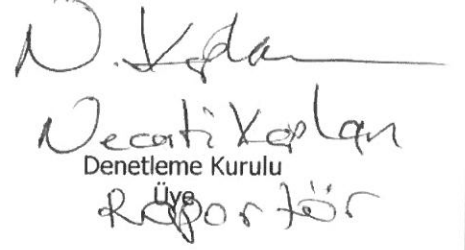 N. Kaplan
Necati Kaplan
Denetleme Kurulu
Üye
Raportör